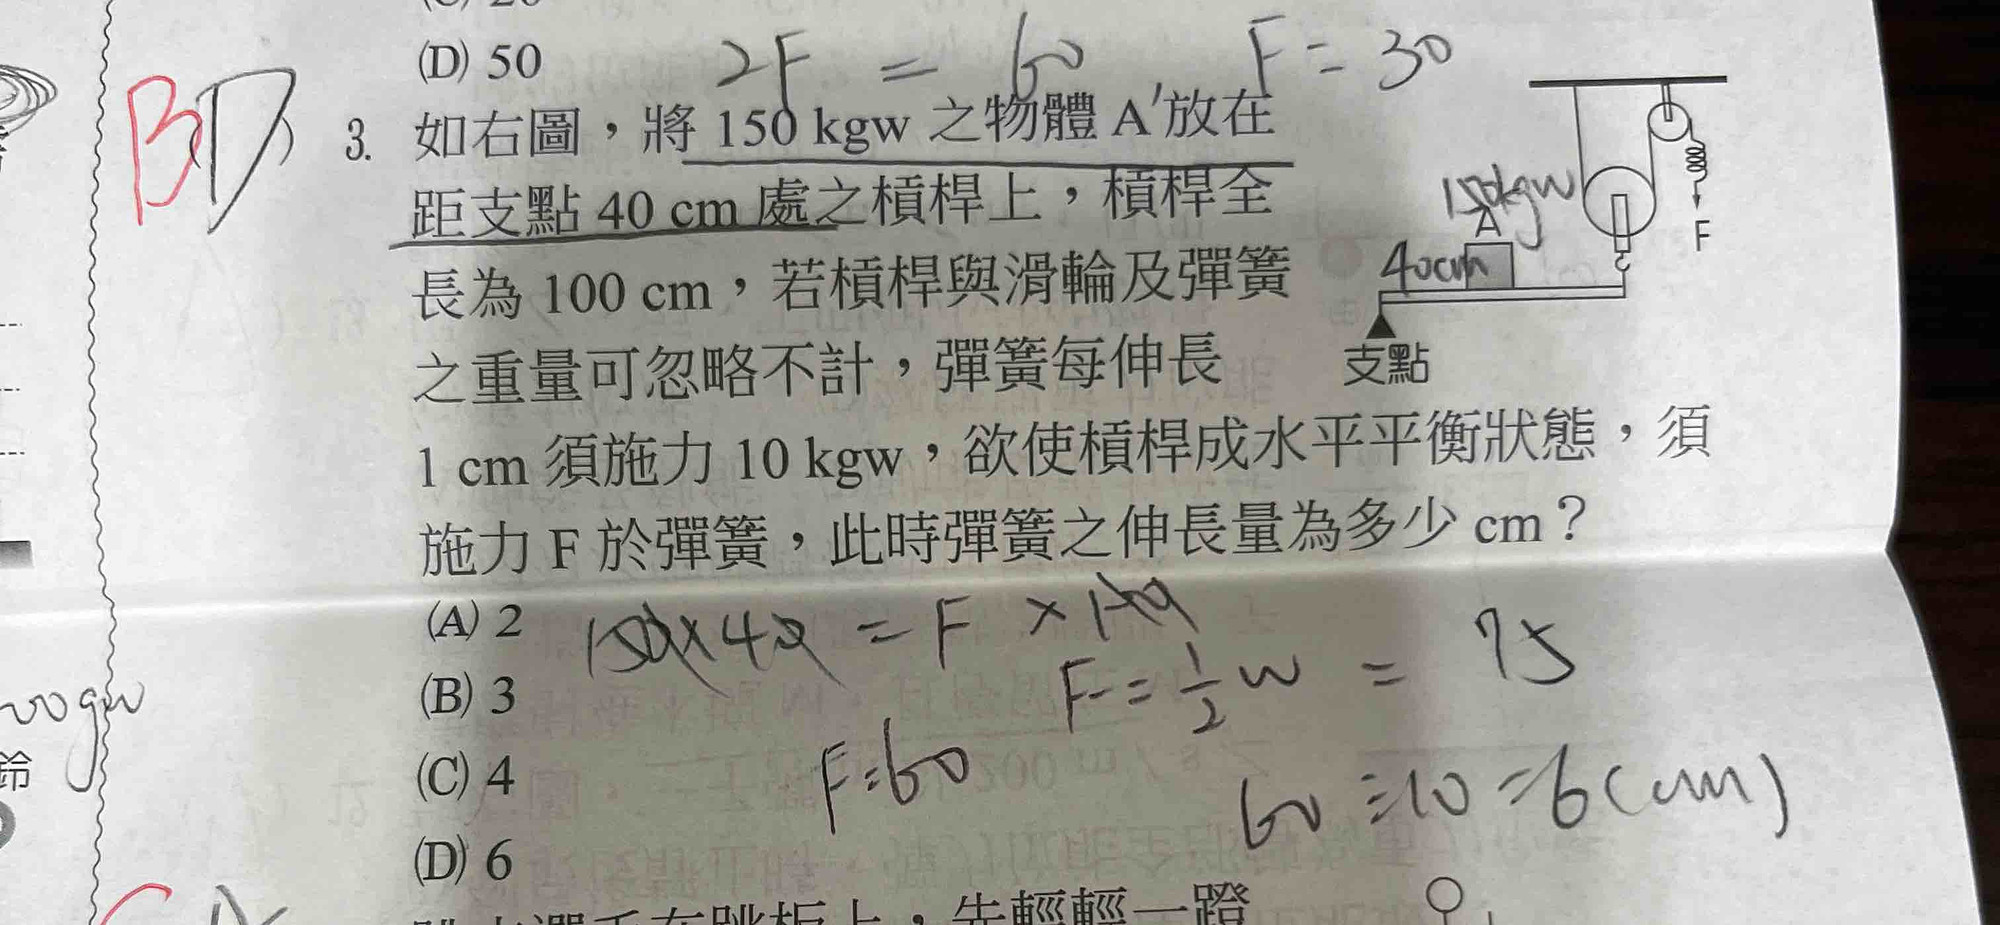 (D) 50
2F = 60 F = 30
BD
3. 如右圖，將 150 kgw 之物體 A 放在
距支點 40 cm 處之槓桿上，槓桿全
長為 100 cm，若槓桿與滑輪及彈簧
之重量可忽略不計，彈簧每伸長
1 cm 須施力 10 kgw，欲使槓桿成水平平衡狀態，須
施力 F 於彈簧，此時彈簧之伸長量為多少 cm？
150kgw
A
F
40cm
支點
(A) 2
150×40 = F × 100
(B) 3
F = 1/2 w = 75
(C) 4
F=60
60÷10=6(cm)
(D) 6
00gw
鈴